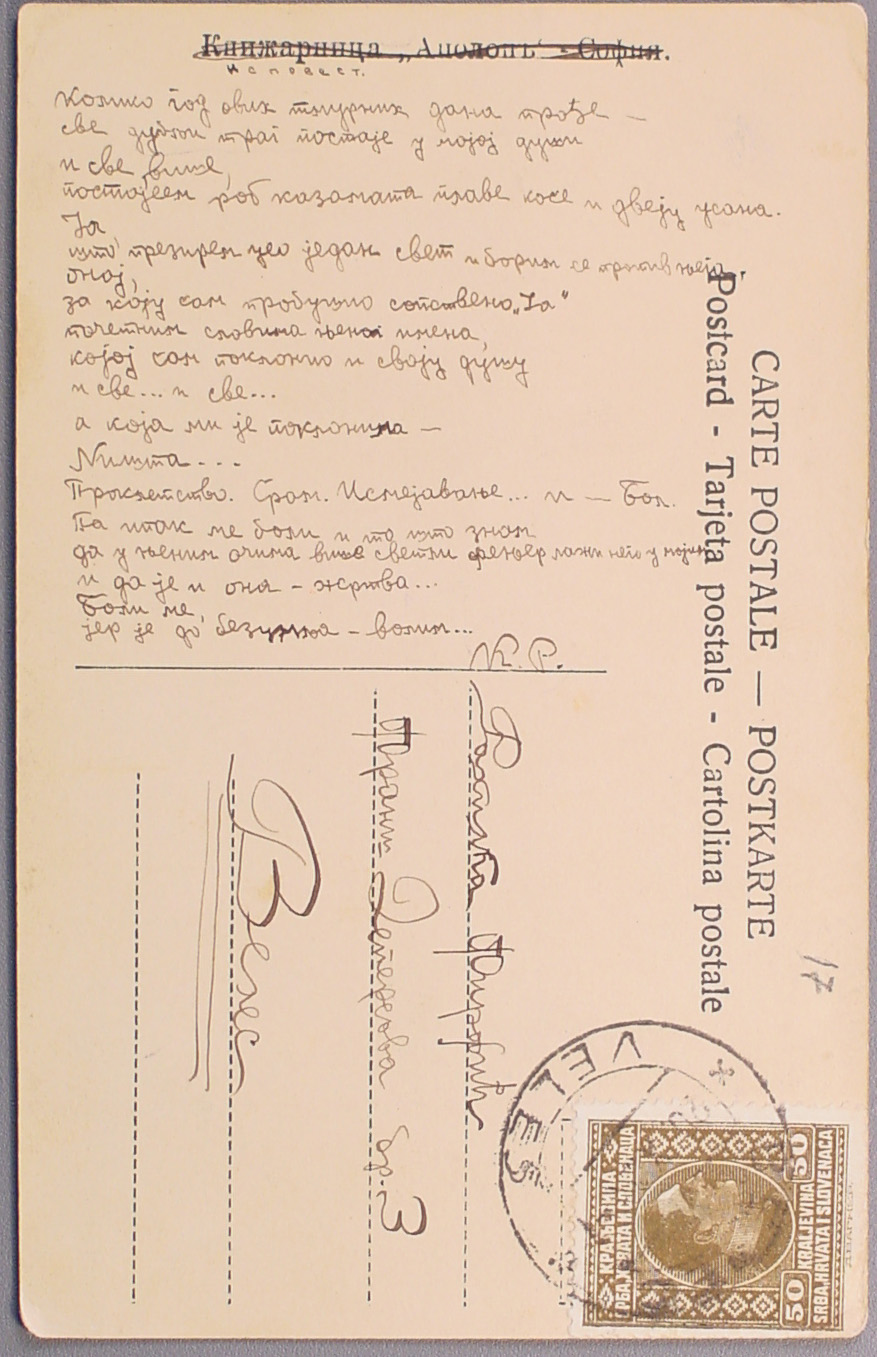 Книжарница „Аполонъ“ - София.
Исповест.
Колико год ових тмурних дана прође —
све дубљи траг постаје у мојој души
и све више,
постајем роб казамата плаве косе и двеју усана.
Ја,
што презирем цео један свет и борим се против њега.
Оној,
за коју сам пробушио сопствено „Ја“
почетним словима њеног имена,
којој сам поклонио и своју душу
и све... и све...
а која ми је поклонила —
Ништа...
Проклетство. Срам. Исмејавање... и — Бол.
Па ипак ме боли и то што знам
да у њеним очима више светли фењер лажи него у мојим
и да је и она - жртва...
Боли ме,
јер је до безумља - волим...
К. Р.
CARTE POSTALE — POSTKARTE
Postcard - Tarjeta postale - Cartolina postale
17
Ћировић
бр. 3
Велес
VELES
КРАЉЕВИНА
СРБА, ХРВАТА И СЛОВЕНАЦА
50 50
KRALJEVINA
SRBA, HRVATA I SLOVENACA